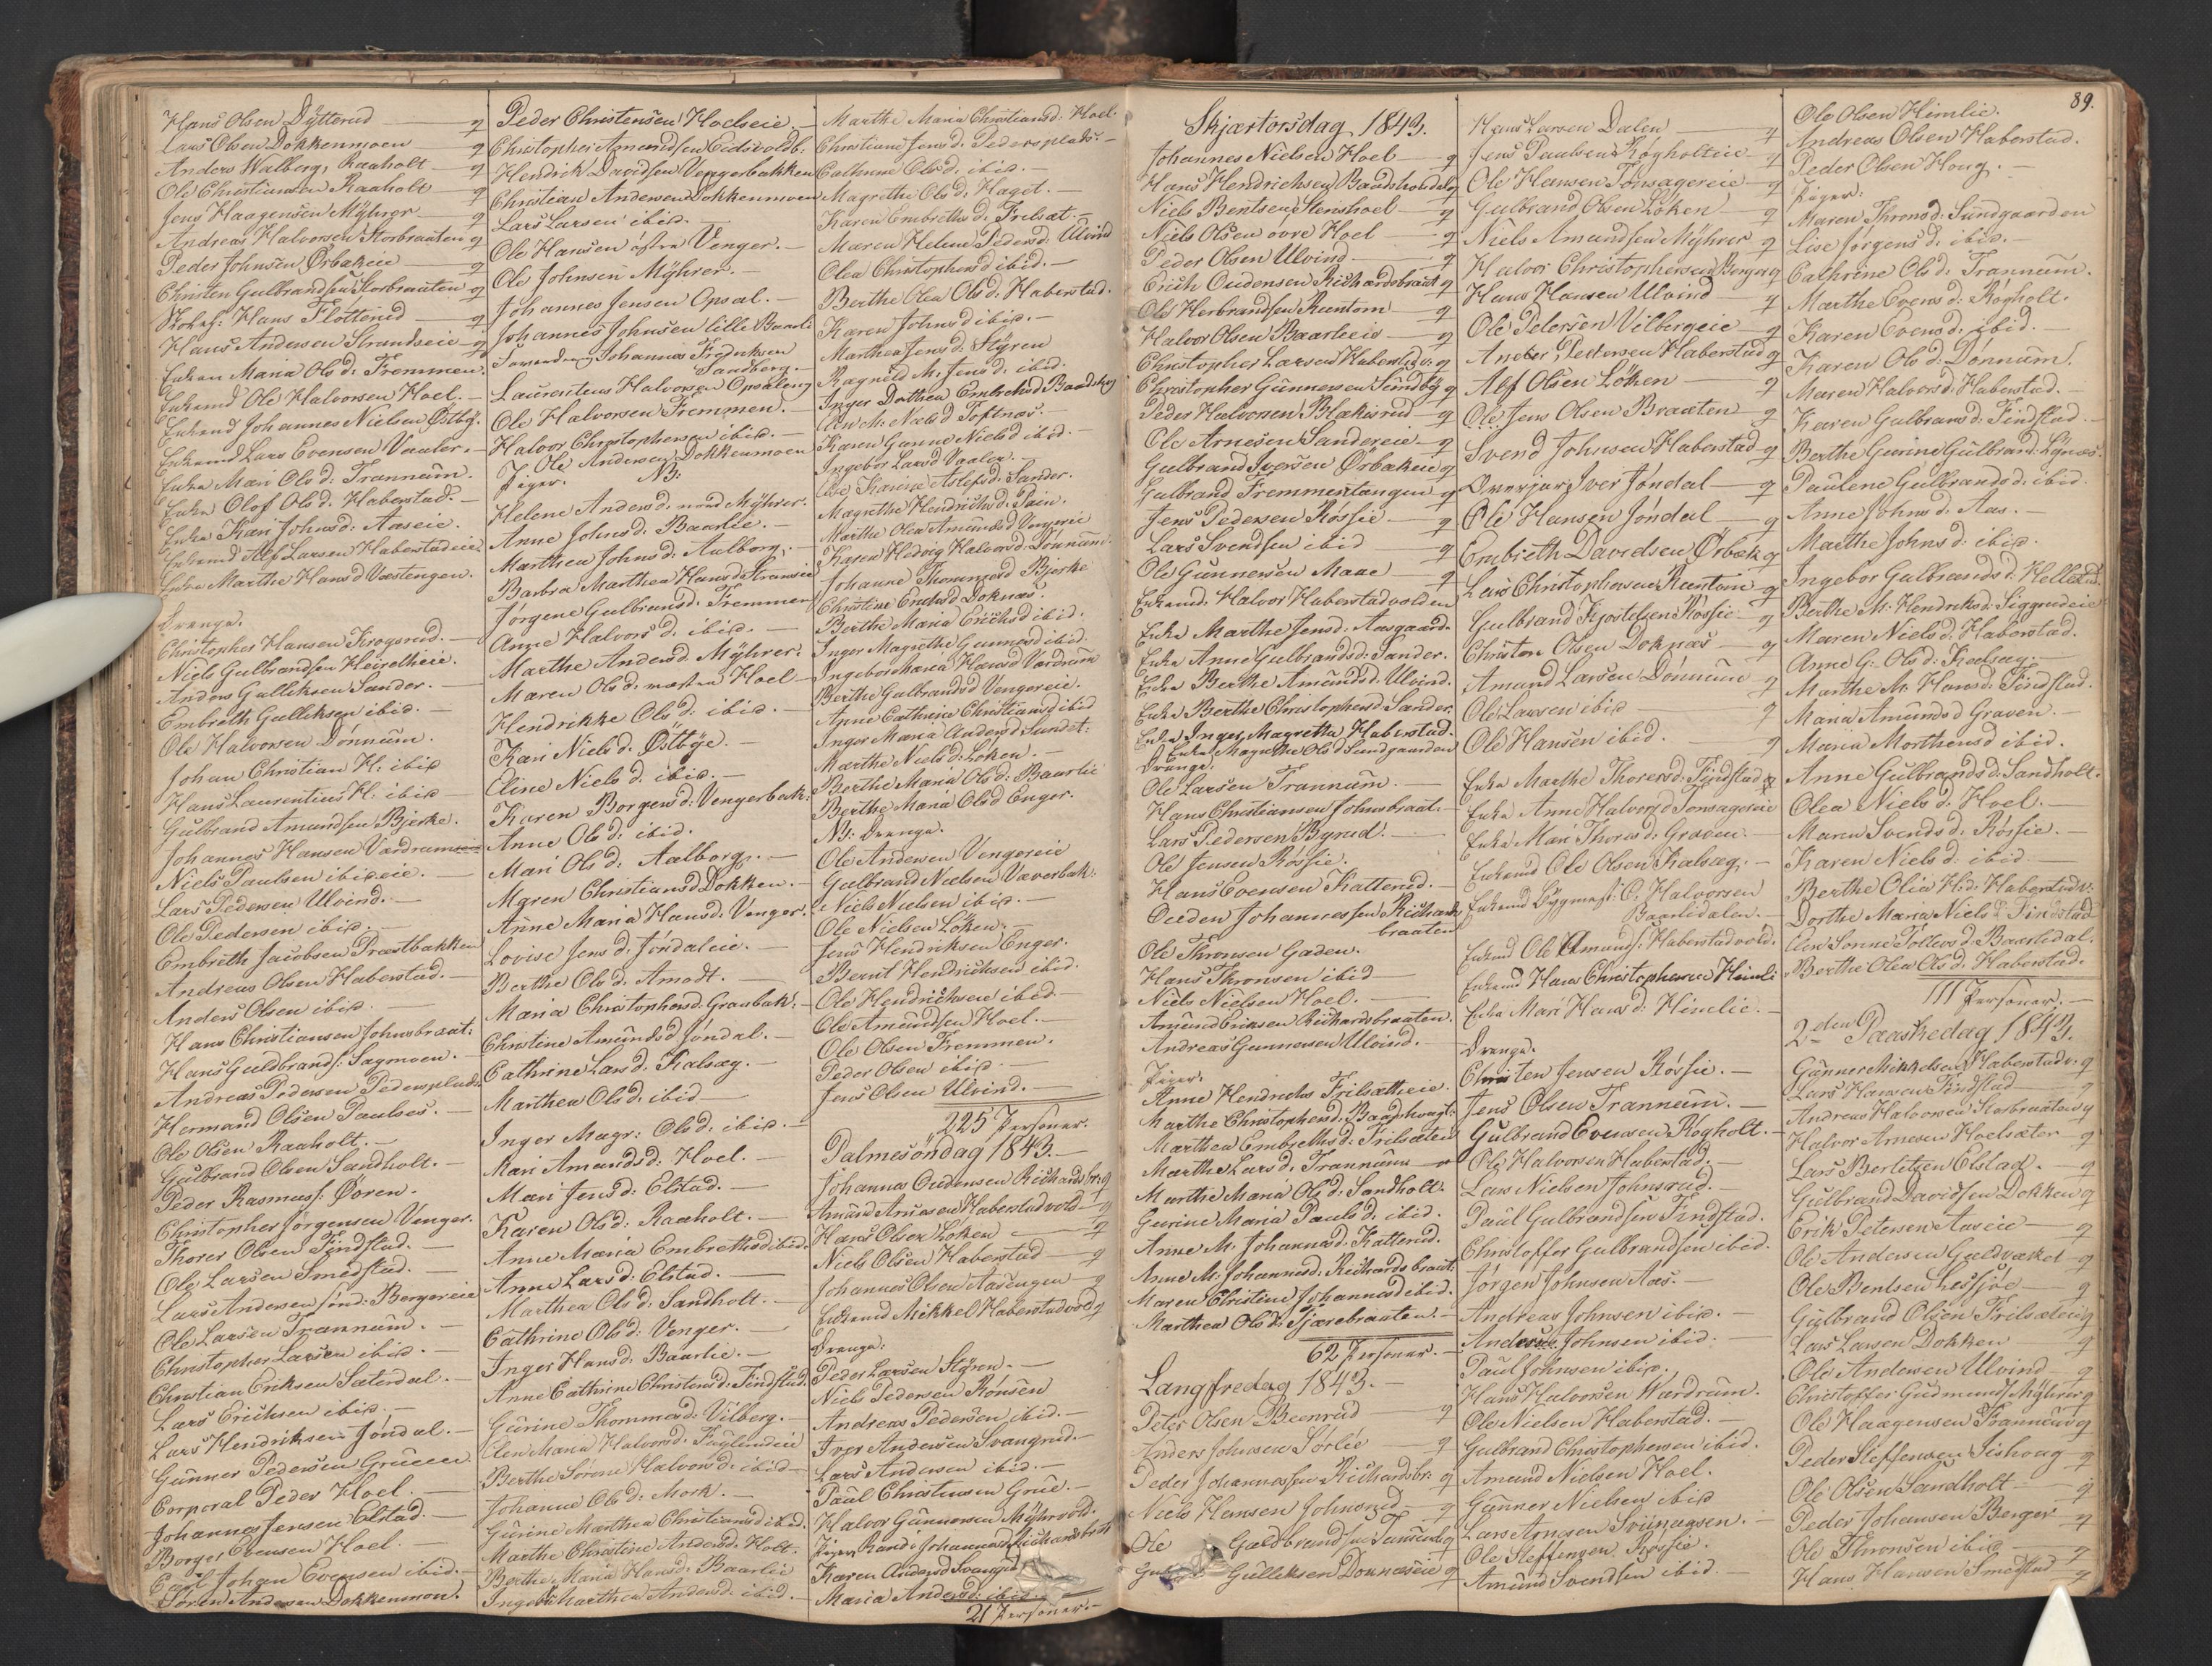 Hans Olsen Dytterud — q
Lars Olsen Dokkenmoen — q
Anders Walberg, Raaholt — q
Ole Christiansen Raaholt — q
Jens Haagensen Myhrer — q
Andreas Halvorsen Storbraaten q
Peder Johnsen Ørbækeie — q
Christen Gulbrandsen Storbraaten q
Hans Flötterud — q
Hans Andersen Strandseie — q
Enken Maria Olsd: Fremmen.
Enkemd Ole Halvorsen Hoel. —
Enkemd Johannes Nielsen Østby.
Enkemd Lars Evensen Vaaler. —
Enke Mari Olsd: Trannum.
Enke Olof Olsd: Haberstad. —
Enke Kari Johnsd: Aaseie.
Enkemd Alf Larsen Haberstadeie.
Enke Marthe Hansd Væstengen.
Drenge.
Christopher Hansen Krogsrud. —
Niels Gulbrandsen Heiretheie.
Anders Gulliksen Sander. —
Embreth Gulliksen ibid. —
Ole Halvorsen Dönnum.
Johan Christian H: ibid
Hans Laurentius H: ibid —
Gulbrand Amundsen Bjerke.
Johannes Hansen Vardrumseie
Niels Paulsen ibideie. —
Lars Pedersen Ulvind. —
Ole Pedersen ibid. —
Embreth Jacobsen Præstbakken
Andreas Olsen Haberstad. —
Anders Olsen ibid —
Hans Christiansen Johnsbraat:
Hans Guldbrands: Sagmoen. —
Andreas Pedersen Pedersplads.
Hermand Olsen Paulses. —
Ole Olsen Raaholt. —
Gulbrand Olsen Sandholt. —
Peder Rasmuss: Øoren.
Christopher Jörgensen Venger.
Thorer Olsen Findstad. —
Ole Larsen Smedstad. —
Lars Andersen sönd: Bergereie
Ole Larsen Trannum. —
Christopher Larsen ibid. —
Christian Eriksen Sæterdal. —
Lars Erichsen ibid. —
Lars Hendriksen Jöndal. —
Gunner Pedersen Gruuen
Corporal Peder Hoel. —
Johannes Jensen Elstad. —
Borger Evensen Hoel. —
Carl Johan Evensen ibid. —
Sören Andersen Dokkenmoen.
Peder Christensen Hoelseie. —
Christopher Amundsen Eidsvoldb.
Hendrik Davidsen Vengerbakken
Christian Andersen Dokkenmoen
Lars Larsen ibid. —
Ole Hansen östre Venger. —
Ole Johnsen Myhrer. —
Johannes Jensen Opsal. —
Johannes Johnsen lille Baarli
Johannes Fredriksen
Sandberg. —
Laurentius Halvorsen Opsaleng
Ole Halvorsen Fremmen. —
Halvor Christophersen ibid. —
Ole Andersen Dokkenmoen
Piger. N3:
Helene Andersd: nord Myhrer.
Anne Johnsd: Baarlie. —
Marthea Johnsd: Aalborg. —
Barbra Marthea Hansd:
Jörgene Gulbransd: Fremmen
Anne Halvorsd: ibid. —
Marthe Andersd: Myhrer.
Maren Olsd: mæstre Hoel —
Hendrikke Olsd: ibid. —
Kari Nielsd: Østbye. —
Eline Nielsd: ibid. —
Karen Borgersd: Vengerbak:
Anne Olsd: ibid.
Mari Olsd: Aalborg. —
Maren Christiansd Dokken. —
Anne Maria Hansd: Venger.
Lovise Jensd: Jöndaleie. —
Berthe Olsd: Amodt. —
Maria Christophersd: Graabak: —
Christine Amundsd Jöndal. —
Cathrine Larsd: Kalsæg. —
Marthea Olsd: ibid —
Inger Magr: Olsd: ibid. —
Kari Amundsd: Hoel. —
Mari Jensd: Elstad. —
Karen Olsd: Raaholt. —
Anne Maria Embrethsd ibid.
Anne Larsd: Elstad. —
Marthea Olsd: Sandholt. —
Cathrine Olsd: Venger. —
Inger Hansd: Baarlie. —
Anne Cathrine Christensd: Findstad.
Gurine Thommesd: Vilberg. —
Elen Maria Halvorsd: Fuglendeie
Berthe Sörine Halvorsd: ibid —
Johanne Olsd: Mork. —
Gurine Marthea Christiansd ibid.
Marthe Christine Andersd: Holt.
Berthe Maria Hansd: Baarlie
Ingebor Marthea Andersd: ibid. —
Marthe Maria Christiansd: Hoel.
Christiane Jensd: Pedersplads. —
Cathrine Olsd: ibid. —
Magrethe Olsd: Haget. —
Karen Embrethsd: Frilsæt. —
Maren Helene Pedersd: Ulvind
Olea Christophersd ibid. —
Berthe Olea Olsd: Haberstad.
Karen Johnsd ibid. —
Marthea Jensd: Styren
Ragnild M: Jensd: ibid.
Inger Dorthea Embrethsd Baadshog
Elen M: Nielsd Toftnæs.
Karen Gunne Nielsd ibid. —
Ingebor Larsd Vaaler. —
Else Karine Aslefsd: Sander.
Magrethe Hendrichsd: Pain.
Marthe Olea Amundsd Vengereie
Karen Hedvig Halvorsd: Dönnum.
Johanne Thommesd Bjerke
Christine Endresd Doknæs.
Berthe Maria Erichsd ibid.
Inger Magrethe Gunnersd ibid.
Ingebor Maria Hansd Vardrum
Berthe Gulbrandsd Vengereie.
Anne Cathrine Christiansd ibid
Inger Maria Andersd Sundet:
Marthe Nielsd: Löken. —
Berthe Maria Olsd: Baarlie
Berthe Maria Olsd Enger.
N3: Drenge.
Ole Andersen Vengereie
Gulbrand Nielsen Væverbak:
Niels Nielsen ibid. —
Ole Nielsen Löken. —
Jens Hendriksen Enger.
Bernt Hendrichsen ibid.
Ole Hendrichsen ibid —
Ole Amundsen Hoel. —
Ole Olsen Fremmen.
Peder Olsen ibid —
Jens Olsen Ulvind. —
225 Personer.
Palmesöndag 1843. —
Johannes Oudensen Richardsbr: q
Amund Arnesen Haberstadvold — q
Hans Olsen Löken — q
Niels Olsen Haberstad — q
Johannes Olsen Aasengen — q
Enkemd Mikkel Haberstadvold q
Drenge:
Peder Larsen Styren. —
Niels Pedersen Rönsen
Andreas Pedersen ibid. —
Iver Andersen Svangrud. —
Lars Andersen ibid. —
Paul Christensen Grue. —
Halvor Gunnersen Myhrvold.
Piger. Randi Johannesd Richardsbraat
Karen Andersd Svangrud
Maria Andersd: ibid. —
21 Personer. —
89.
Skjærtorsdag 1843.
Johannes Nielsen Hoel — q
Hans Hendrichsen Baadshoudal q
Niels Bentsen Stenshoel — q
Niels Olsen övre Hoel — q
Peder Olsen Ulvind — q
Erich Oudensen Richardsbraat q
Ole Herbrandsen Runtom — q
Halvor Olsen Baarlieie — q
Christopher Larsen Haberstdv: q
Christopher Gunnersen Sundby q
Peder Halvorsen Blækisrud — q
Ole Arnesen Sandereie — q
Gulbrand Iversen Ørbækeie q
Gulbrand Fremmentangen q
Jens Pedersen Rössie — q
Lars Svendsen ibid — q
Ole Gunnersen Maae — q
Enkemd: Halvor Haberstadvolden
Enke Marthe Jensd: Aasgaard.
Enke Anne Gulbrandsd: Sander.
Enke Berthe Amundsd: Ulvind.
Enke Berthe Christophersd Sander.
Enke Inger Magretha Haberstad.
Enke Magrethe Olsd Sundgaarden
Drenge:
Ole Larsen Trannum. —
Hans Christiansen Johnsbraat. —
Lars Pedersen Byrud. —
Ole Jensen Rössie.
Hans Evensen Katterud. —
Ouden Johannessen Richards
braaten
Ole Thronsen Gaden.
Hans Thronsen ibid —
Niels Nielsen Hoel. —
Amund Eriksen Richardsbraaten.
Andreas Gunnersen Ulvind. —
Piger.
Anne Hendrichs Frilsætteie.
Marthe Christophersd: Baadshougt:
Marthea Embrethsd: Frilsæteie
Marthe Larsd: Trannum —
Marthe Maria Olsd: Sandholt.
Gurine Maria Paulsd: ibid.
Anne M. Johannesd: Katterud.
Anne M: Johannesd: Richardsbraat:
Maren Christine Johannesd ibid.
Marthea Olsd: Tjærebraaten. —
62 Personer. —
Langfredag 1843. —
Peter Olsen Beenrud — q
Anders Johnsen Sörlie — q
Peder Johannessen Richardsbr: q
Niels Hansen Johnsrud — q
Ole Guldbrandsen q
Gulliksen Donnæseie q
Hans Larsen Dalen — q
Jens Paulsen Rögholteie — q
Ole Hansen Tonsagereie — q
Gulbrand Olsen Löken — q
Niels Amundsen Myhrer q
Halvor Christophersen Berger q
Hans Hansen Ulvind — q
Ole Petersen Vilbergeie — q
Anders Pedersen Haberstad q
Alf Olsen Löken — q
Ole Jens Olsen Braaten q
Svend Johnsen Haberstad q
Iver Jöndal — q
Ole Hansen Jöndal — q
Embreth Davidsen Ørbæk q
Lars Christophersen Runtom q
Gulbrand Kjostelsen Rössie — q
Christen Olsen Doknæs — q
Amund Larsen Dönnum q
Ole Larsen ibid — q
Ole Hansen ibid. — q
Enke Marthe Thorersd: Findstad
Enke Anne Halvorsd Tonsagereie
Enke Mari Thoresd: Graven. —
Enkemd Ole Olsen Kalsæg. —
Enkemd Bygmest: C. Halvorsen
Baarlidalen. —
Enkemd Ole Amunds: Haberstadvold.
Enkemd Hans Christophersen Heimli
Enke Mari Hansd: Himlie. —
Drenge.
Christen Jensen Rössie. —
Jens Olsen Trannum. —
Gulbrand Evensen Rogholt. —
Ole Halvorsen Haberstad. —
Lars Nielsen Johnsrud. —
Paul Gulbrandsen Findstad.
Christoffer Gulbrandsen ibid.
Jörgen Johnsen Aas. —
Andreas Johnsen ibid.
Anders Johnsen ibid. —
Paul Johnsen ibid.
Hans Halvorsen Wardrum.
Ole Nielsen Haberstad. —
Gulbrand Christophersen ibid.
Amund Nielsen Hoel.
Gunner Nielsen ibid
Lars Arnesen Sviinaasen. —
Ole Steffensen Rössie.
Amund Svendsen ibid. —
Ole Olsen Himlie.
Andreas Olsen Haberstad.
Peder Olsen Houg. —
Piger:
Maren Thronsd: Sundgaarden
Lise Jörgensd: ibid. —
Cathrine Olsd: Trannum.
Marthe Evensd: Rögholt.
Karen Evensd: ibid.
Karen Olsd: Dönnum.
Maren Halvorsd: Haberstad. —
Karen Gulbransd: Findstad —
Berthe Gurine Gulbrand: Lysnæs.
Paulene Gulbrandsd: ibid.
Anne Johnsd: Aas. —
Marthe Johnsd: ibid.
Ingebor Gulbrandsd: Hellerud.
Berthe M. Hendriksd: Siggerudeie
Maren Nielsd: Haberstad.
Anne G: Olsd: Kalsæg. —
Marthe M. Hansd: Findstad.
Maria Amundsd Graven. —
Maria Morthensd ibid.
Anne Gulbrandsd: Sandholt.
Olea Nielsd: Hoel. —
Maren Svendsd: Rössie. —
Karen Nielsd: ibid —
Berthe Olia H:d: Haberstadv:
Dorthe Maria Nielsd: Findstad
Elen Sonne Tollevsd: Baarlidal.
Berthe Olea Olsd: Haberstad.
111 Personer. —
2den Paaskedag 1843.
Gunner Mikkelsen Haberstadv: q
Lars Hansen Findstad — q
Andreas Halvorsen Storbraaten q
Halvor Arnesen Hoelsæter — q
Lars Berletsen Elstad. — q
Gulbrand Davidsen Dokken q
Erik Petersen Aaseie — q
Ole Andersen Guldvæket q
Ole Bentsen Lessjöe — q
Gulbrand Olsen Frilsæteie q
Lars Larsen Dokken — q
Ole Andersen Ulvind — q
Christoffer Gudmunds: Myhrer q
Ole Haagensen Trannum q
Peder Steffensen Lishoug q
Ole Olsen Sandholt — q
Peder Johansen Berger — q
Ole Thronsen ibid — q
Hans Hansen Smedstad — q